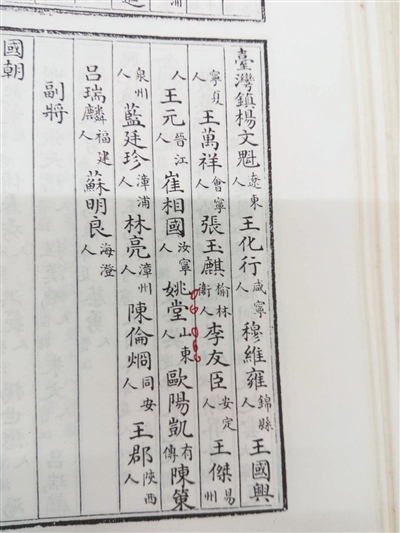 臺灣鎮楊文魁遼東人王化行咸寧人穆維雍錦縣人王國興
寧夏人王萬祥會寧人張玉麒榆林衛人李友臣安定人王傑易州
人王元晉江人崔相國汝寧人姚堂山東人歐陽凱有傳陳策
泉州人藍廷珍漳浦人林亮漳州人陳倫烱同安人王郡陝西人
呂瑞麟福建人蘇明良海澄人
副將
國朝